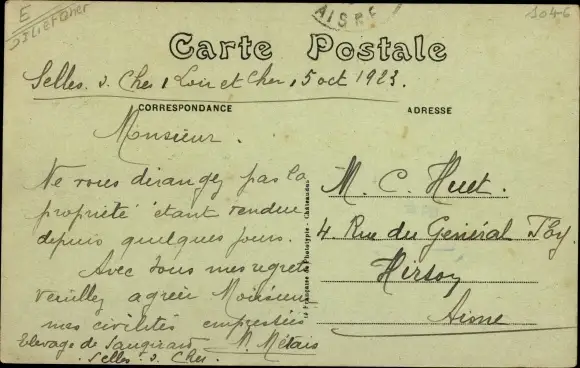 E
AISNE
1046
Carte Postale
Selles. s. Cher, Loir et Cher, 5 oct 1923.
CORRESPONDANCE
ADRESSE
Monsieur.
Ne vous dérangez pas la
propriété étant vendue
depuis quelques jours.
Avec tous mes regrets
veuillez agréer Monsieur
mes civilités empressées
M. Métais
Elevage de
Selles. s. Cher.
Française de Phototypie - Châteaudun
M. C. Huet.
4 Rue du Général Foy.
Hirson
Aisne